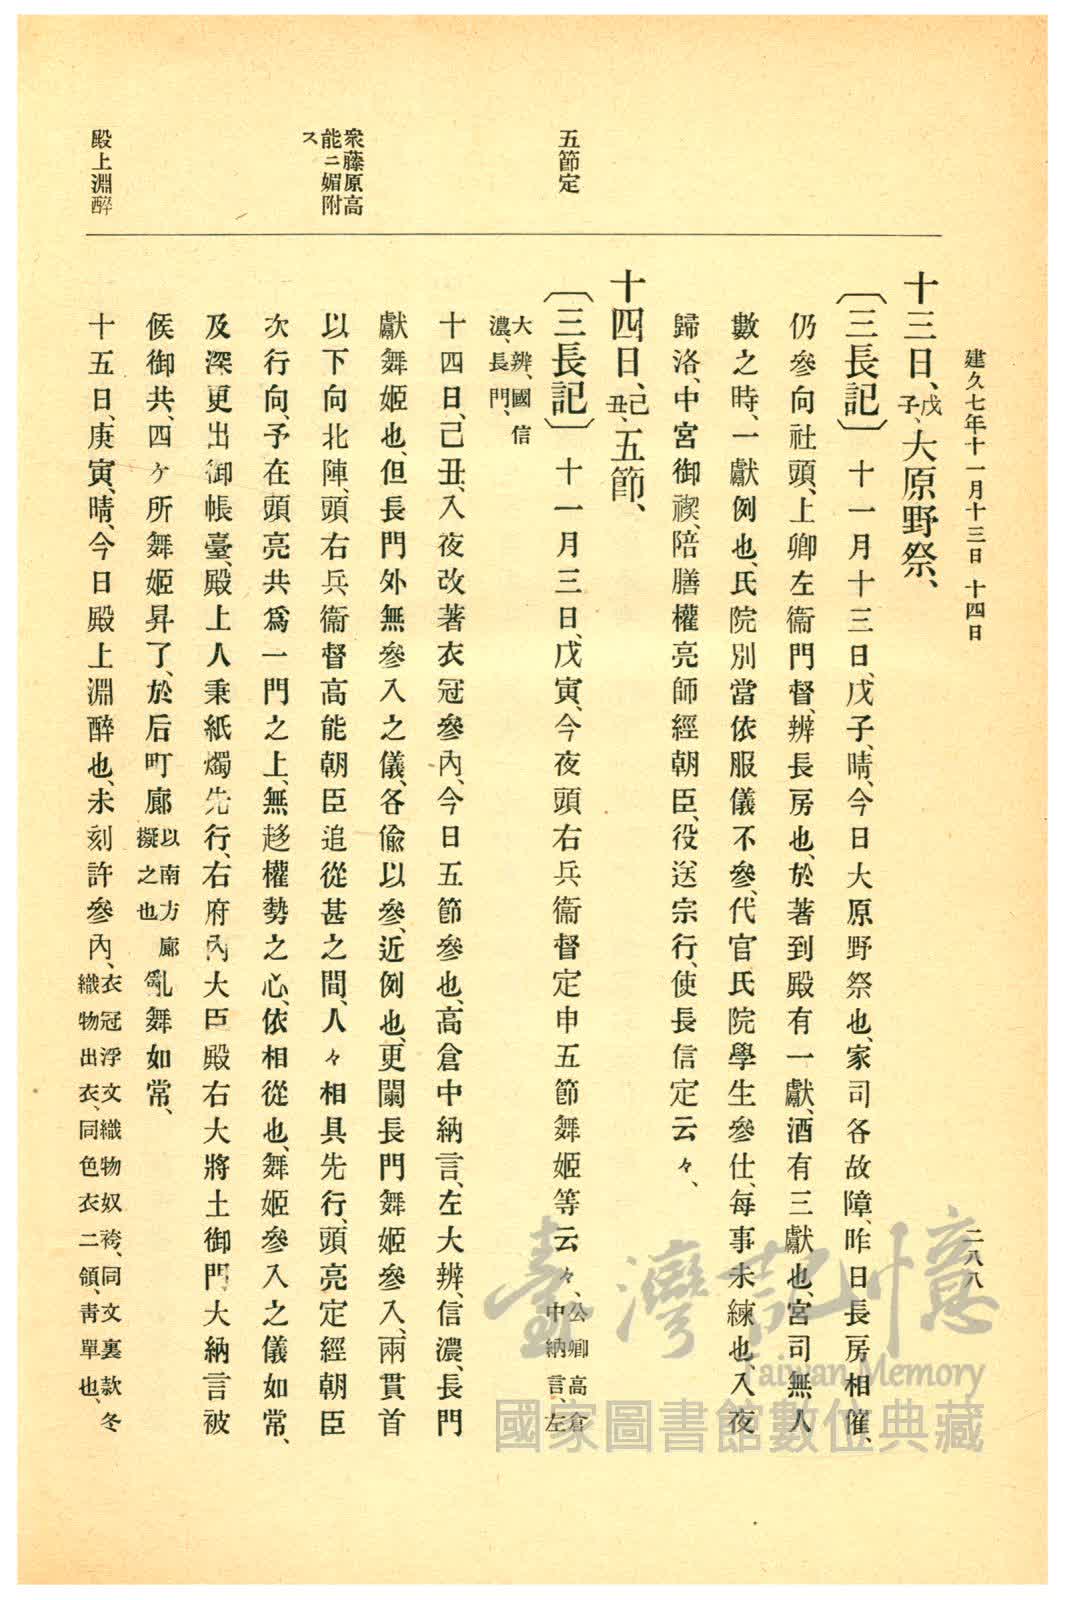 建久七年十一月十三日 十四日
二八八
十三日、戊子、大原野祭、
〔三長記〕十一月十三日、戊子、晴、今日大原野祭也、家司各故障、昨日長房相催、
仍參向社頭、上卿左衞門督、辨長房也、於著到殿有一獻、酒有三獻也、宮司無人
數之時、一獻例也、氏院別當依服儀不參、代官氏院學生參仕、每事未練也、入夜
歸洛、中宮御禊、陪膳權亮師經朝臣、役送宗行、使長信定云々、
十四日、己丑、五節、
五節定
〔三長記〕十一月三日、戊寅、今夜頭右兵衞督定申五節舞姬等云々、公卿高倉中納言、左
大辨、國信濃、長門、
十四日、己丑、入夜改著衣冠參內、今日五節參也、高倉中納言、左大辨、信濃、長門
獻舞姬也、但長門外無參入之儀、各偸以參、近例也、更闌長門舞姬參入、兩貫首
衆藤原高能ニ媚附ス
以下向北陣、頭右兵衞督高能朝臣追從甚之間、人々相具先行、頭亮定經朝臣
次行向、予在頭亮共爲一門之上、無趍權勢之心、依相從也、舞姬參入之儀如常、
及深更出御帳臺、殿上人秉紙燭先行、右府內大臣殿右大將土御門大納言被
候御共、四ヶ所舞姬昇了、於后町廊以南方廊擬之也亂舞如常、
殿上淵醉
十五日、庚寅、晴、今日殿上淵醉也、未刻許參內、衣冠浮文織物奴袴、同文裏款冬織物出衣、同色衣二領、靑單也、
臺灣記憶
Taiwan Memory
國家圖書館數位典藏